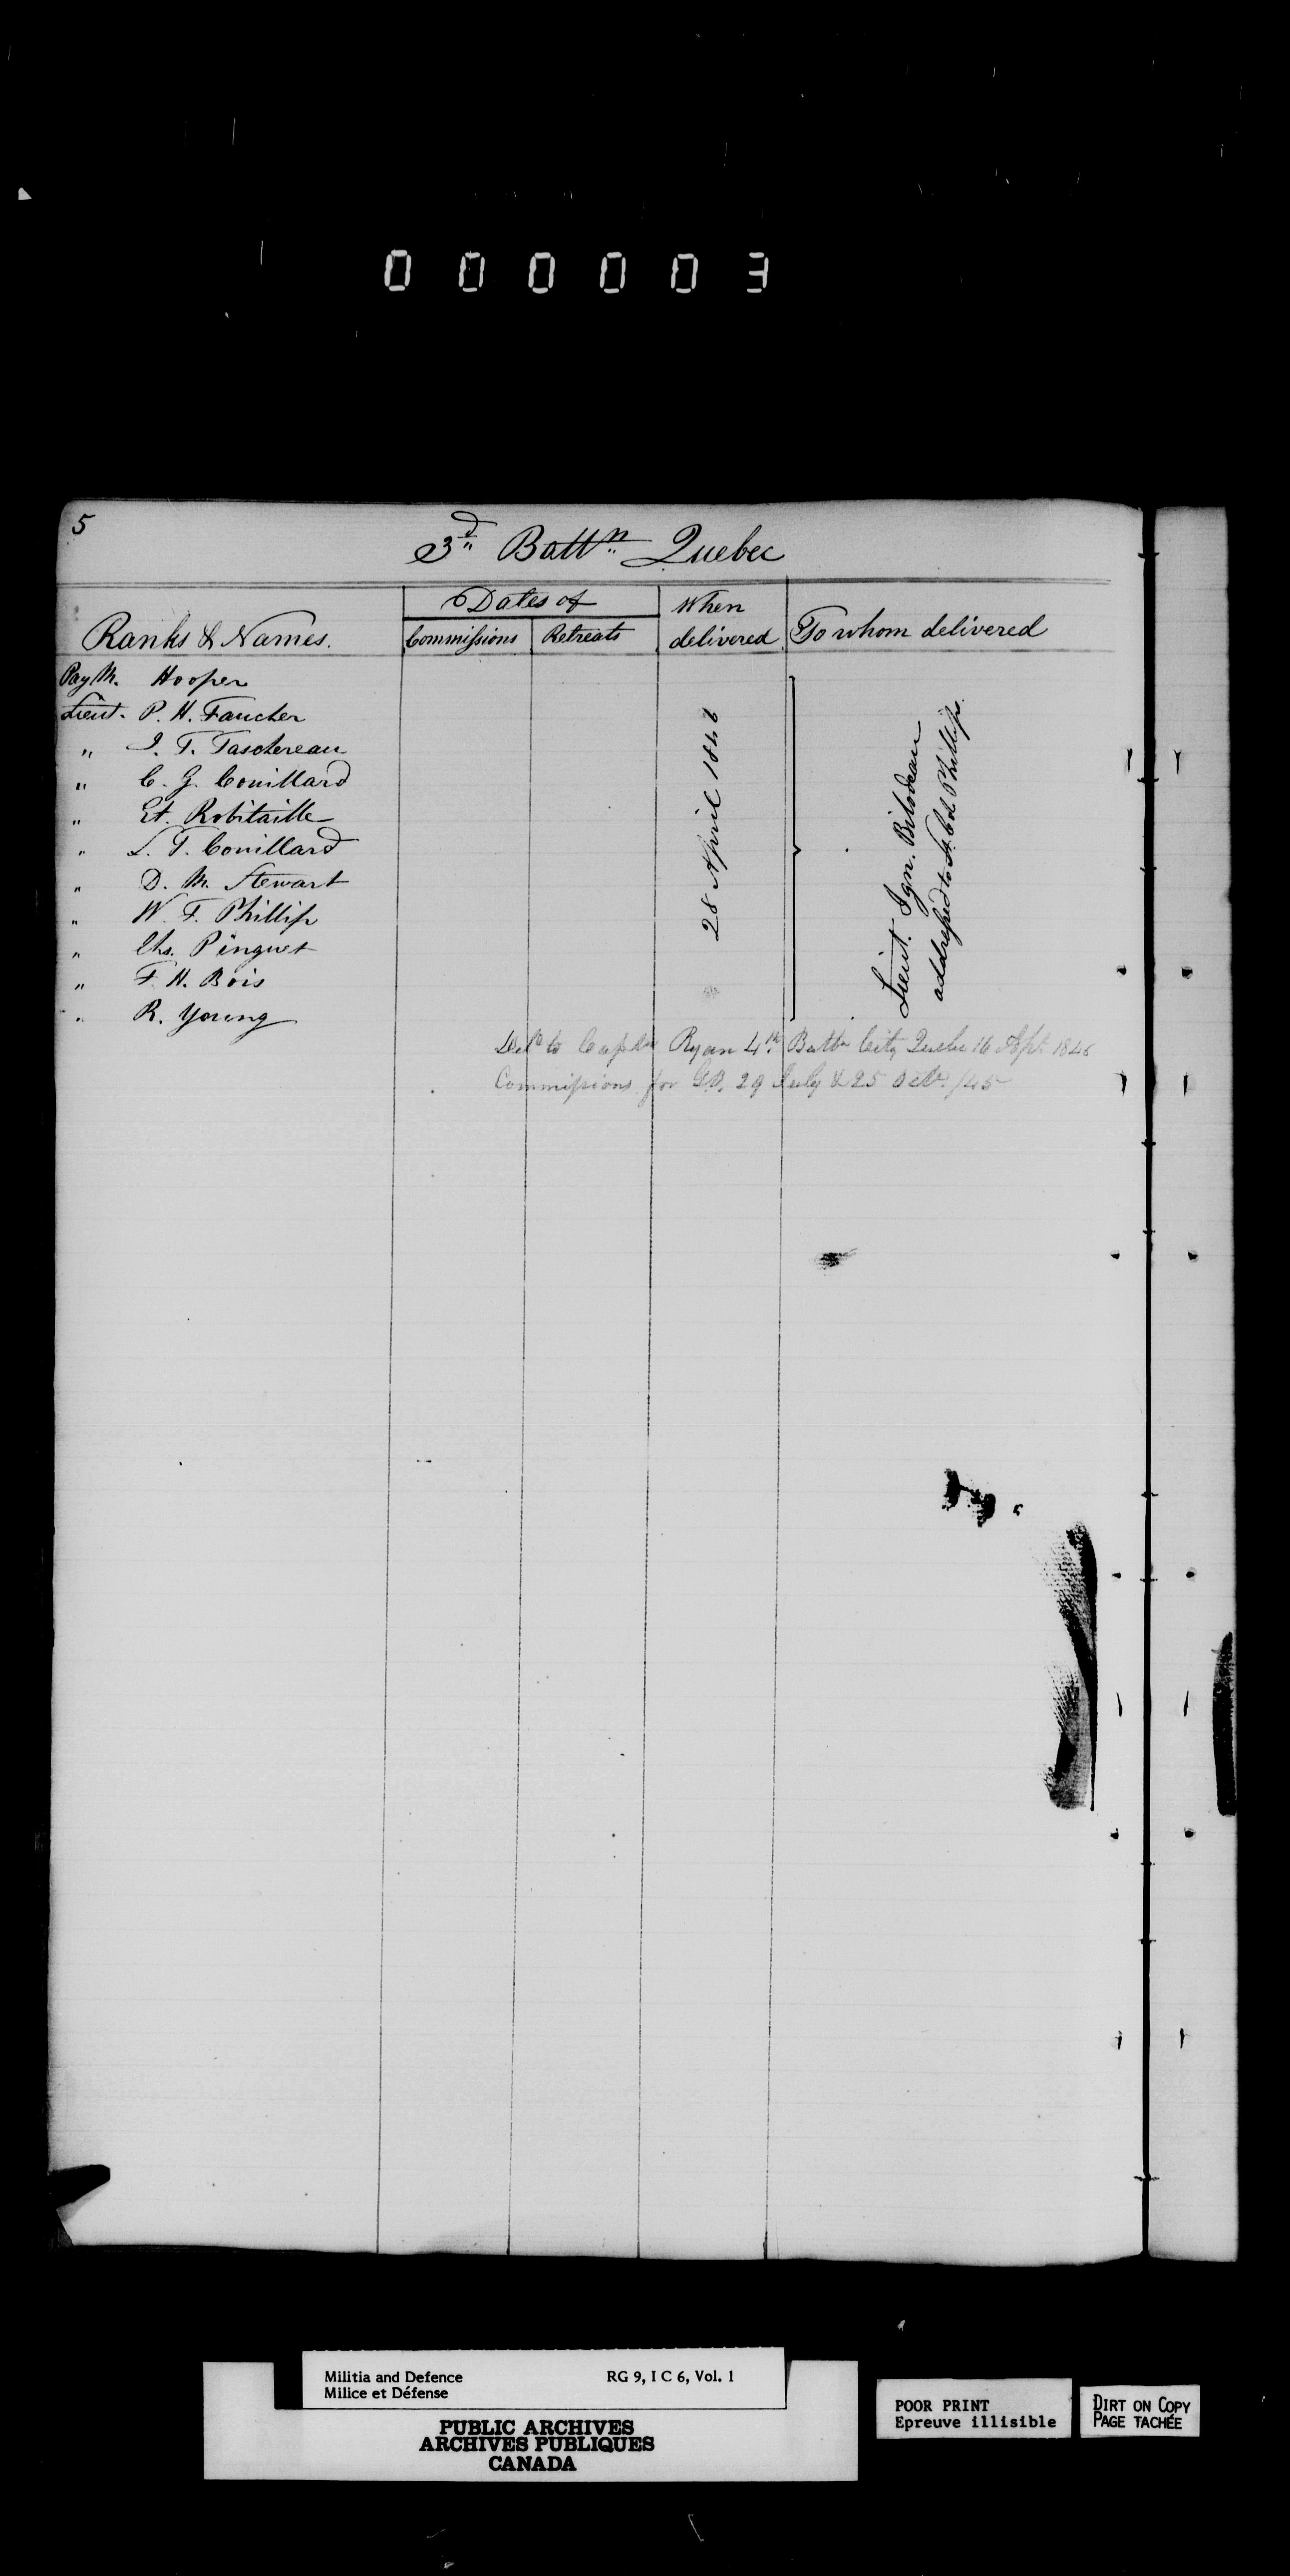 000003
5
3d Battn Quebec
Ranks & Names.
Dates of
Commissions
Retreats
When
delivered
To whom delivered
Pay M. Hooper
Lieut. P. H. Faucher
" J. T. Taschereau
" C. G. Couillard
" Et. Robitaille
" L. T. Couillard
" D. M. Stewart
" W. F. Phillips
" Chs. Pinguet
" F. H. Bois
" R. Young
28 April 1846
Lieut. Ign. Bilodeau
addressed to Lt. Col. Phillips.
Deld to Captn Ryan 4th Battn City Quebec 16 Sept. 1846
Commissions for G.O. 29 July & 25 Octr. /45
Militia and Defence
Milice et Défense
RG 9, I C 6, Vol. 1
PUBLIC ARCHIVES
ARCHIVES PUBLIQUES
CANADA
POOR PRINT
Epreuve illisible
DIRT ON COPY
PAGE TACHÉE